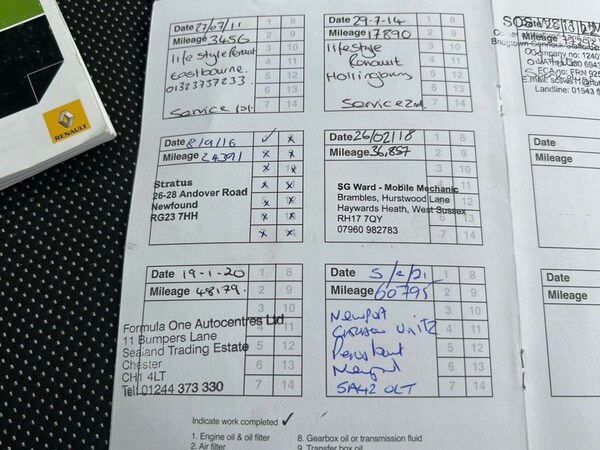 RENAULT
Date 27/07/11
Mileage 3456
lifestyle Renault
Eastbourne.
01323737233.
Service 1st.
1 8
2 9
3 10
4 11
5 12
6 13
7 14
Date 29-7-14
Mileage 17890
lifestyle
Renault
Service 2nd.
1 8
2 9
3 10
4 11
5 12
6 13
7 14
Date 8/9/16
Mileage 24391
Stratus
26-28 Andover Road
Newfound
RG23 7HH
Date 26/02/18
Mileage 36,857
SG Ward - Mobile Mechanic
Brambles, Hurstwood Lane
Haywards Heath, West Sussex
RH17 7QY
07960 982783
Date 19-1-20
Mileage 48179.
Formula One Autocentres Ltd
11 Bumpers Lane
Sealand Trading Estate
Chester
CH1 4LT
Tel: 01244 373 330
1 8
2 9
3 10
4 11
5 12
6 13
7 14
Date
Mileage 60795
Newport
Unit 2
SA42 0LT
1 8
2 9
3 10
4 11
5 12
6 13
7 14
Date
Mileage
Date
Mileage
Indicate work completed ✓
1. Engine oil & oil filter
8. Gearbox oil or transmission fluid
2. Air filter
9. Transfer box oil